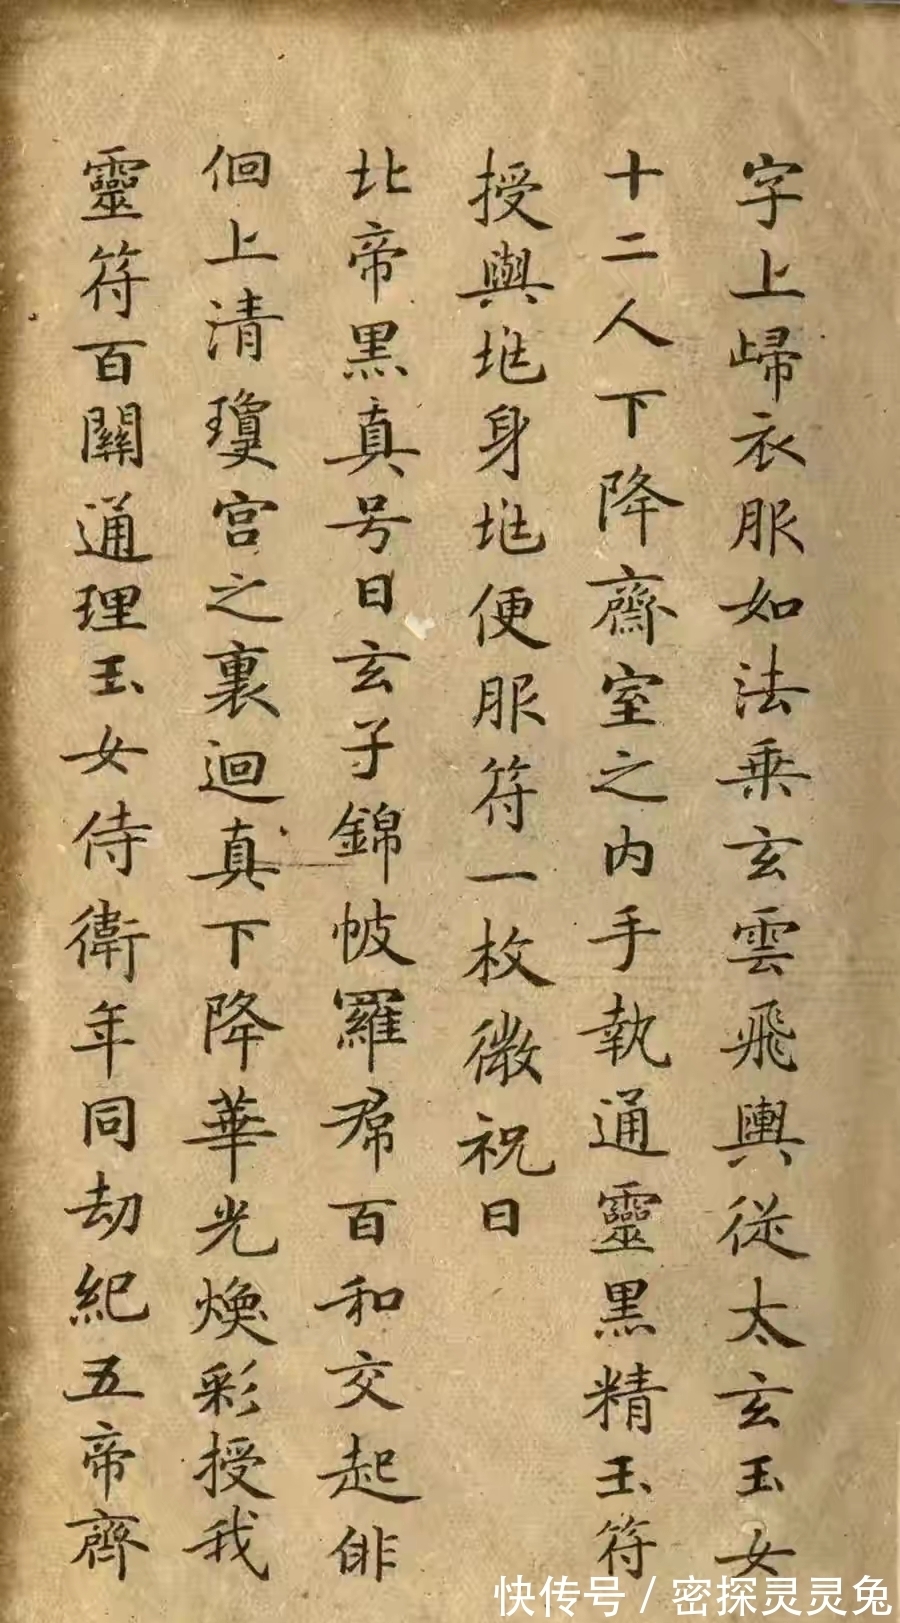 字上歸衣服如法乗玄雲飛輿從太玄玉女
十二人下降齋室之内手執通靈黒精玉符
授與兆身兆便服符一枚微祝曰
北帝黒真号曰玄子錦帔羅帬百和交起俳
佪上清瓊宫之裏迴真下降華光煥彩授我
靈符百關通理玉女侍衛年同劫紀五帝齊
快传号 / 密探灵灵兔